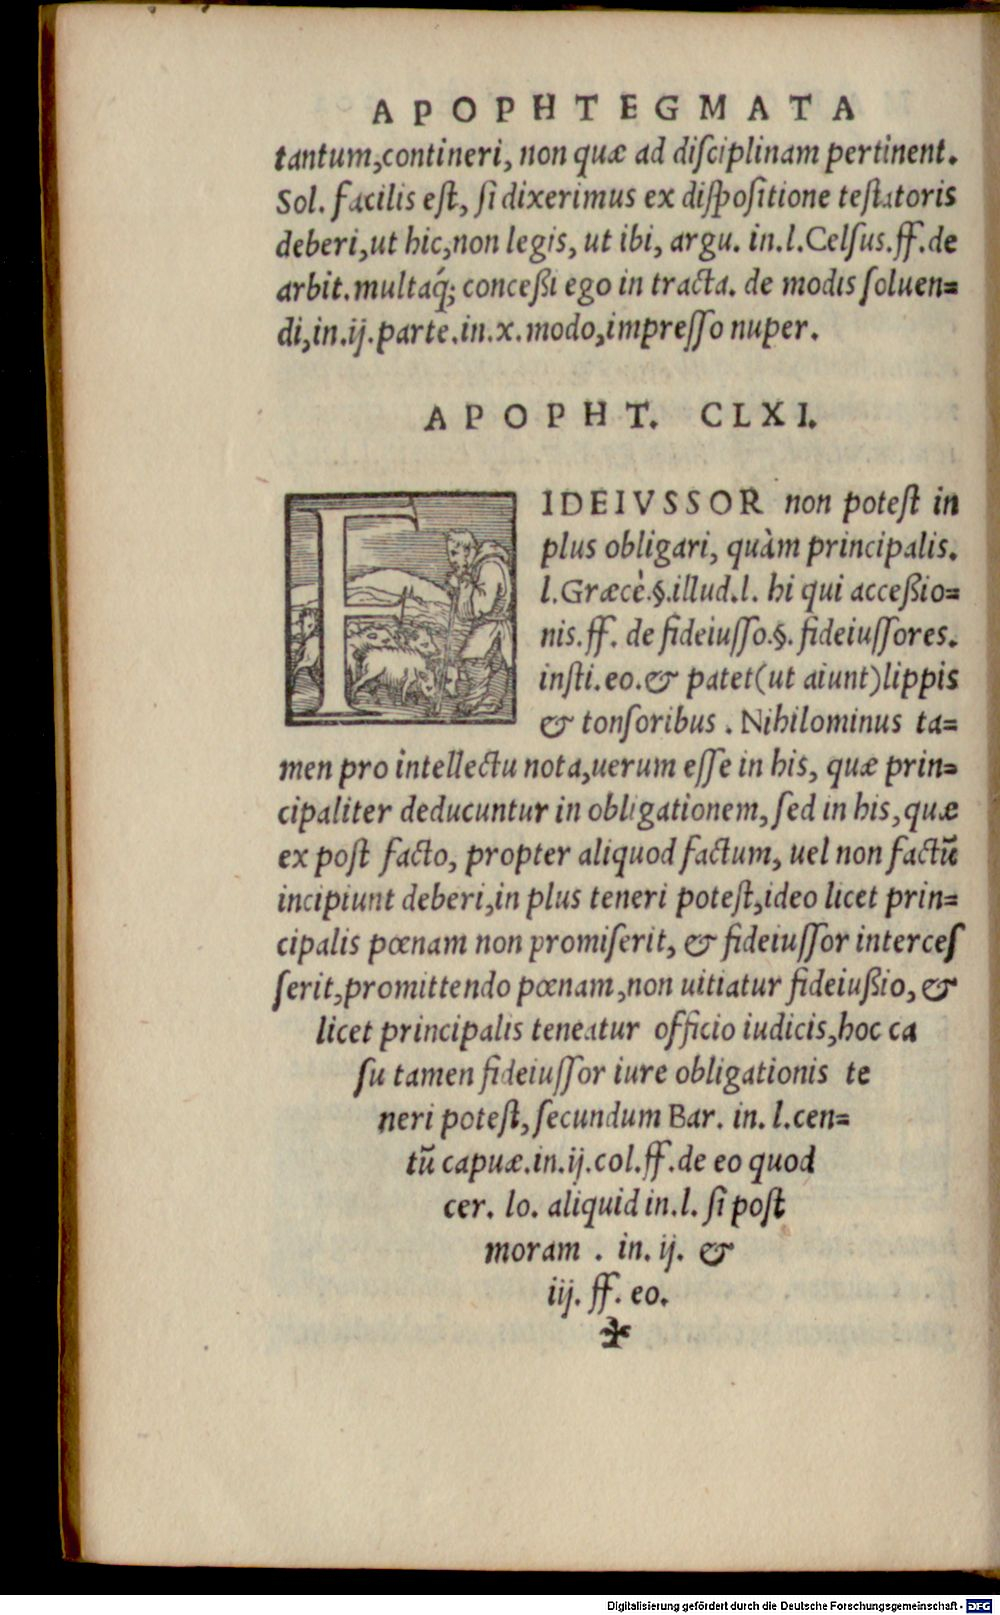 APOPHTEGMATA
tantum,contineri, non quæ ad diſciplinam pertinent.
Sol. facilis eſt, ſi dixerimus ex diſpoſitione teſtatoris
deberi,ut hic,non legis, ut ibi, argu. in.l.Celſus.ff.de
arbit.multaq́; conceßi ego in tracta. de modis ſoluen=
di,in.ij.parte.in.x.modo,impreſſo nuper.
APOPHT. CLXI.
FIDEIVSSOR non poteſt in
plus obligari, quàm principalis.
l.Græcè.§.illud.l. hi qui acceßio=
nis.ff. de fideiuſſo.§. fideiuſſores.
inſti.eo.& patet(ut aiunt)lippis
& tonſoribus . Nihilominus ta=
men pro intellectu nota,uerum eſſe in his, quæ prin=
cipaliter deducuntur in obligationem, ſed in his,quæ
ex poſt facto, propter aliquod factum, uel non factū
incipiunt deberi,in plus teneri poteſt,ideo licet prin=
cipalis pœnam non promiſerit, & fideiuſſor interceſ
ſerit,promittendo pœnam,non uitiatur fideiußio, &
licet principalis teneatur officio iudicis,hoc ca
ſu tamen fideiuſſor iure obligationis te
neri poteſt, ſecundum Bar. in. l.cen=
tū capuæ.in.ij.col.ff.de eo quod
cer. lo. aliquid in.l. ſi poſt
moram . in. ij. &
iij. ff. eo.
Digitalisierung gefördert durch die Deutsche Forschungsgemeinschaft - DFG